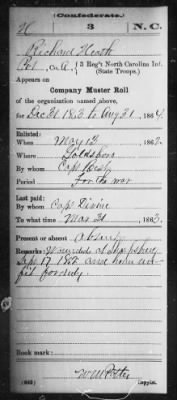 (Confederate.)
H 3 N.C.
Richard Heath
Pvt, Co. A, 3 Reg't North Carolina Inf.
(State Troops.)
Appears on
Company Muster Roll
of the organization named above,
for Dec 31 183 to Aug 31, 1864.
Enlisted:
When May 13, 1862.
Where Goldsboro
By whom Capt
Period For the war
Last paid:
By whom Capt Divine
To what time Mar 31, 1863.
Present or absent Absent
Remarks: Wounded at Sharpsburg
Sept 17 1862 and home un-
fit for duty
Book mark:
(642) Copyist.